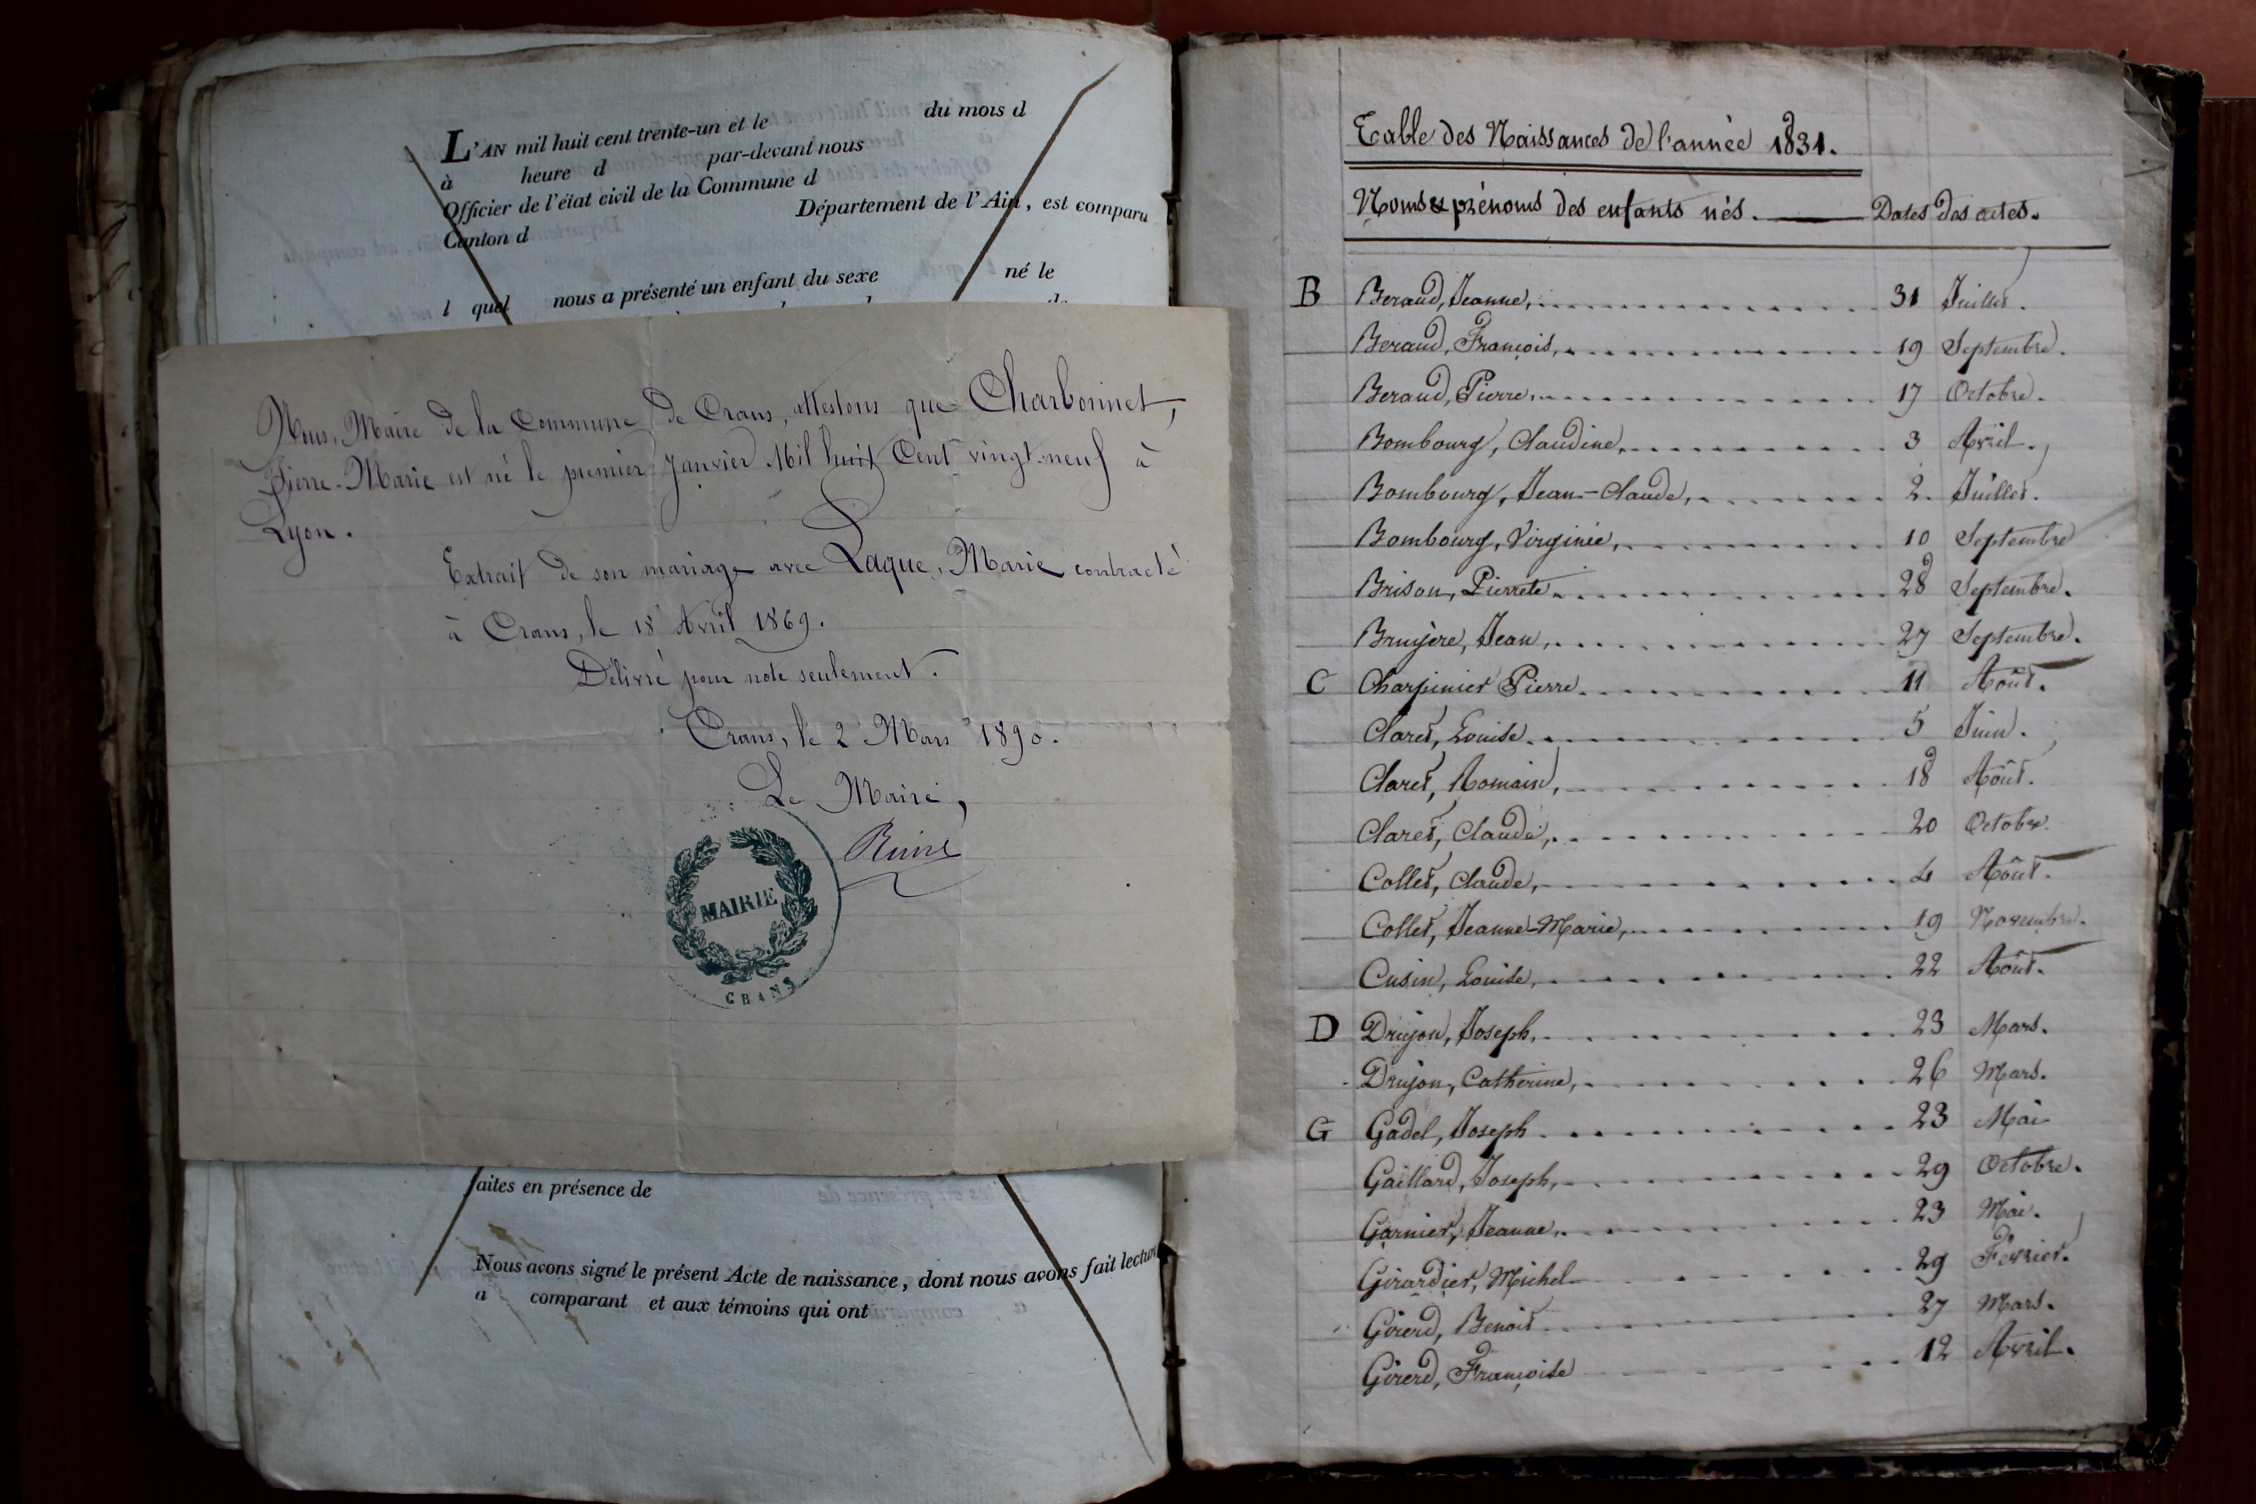 L'AN mil huit cent trente-un et le du mois d
à heure d par-devant nous
Officier de l'état civil de la Commune d
Canton d Département de l'Ain, est comparu
l quel nous a présenté un enfant du sexe né le
Nous, Maire de la Commune de Crans, attestons que Charbonnet,
Pierre-Marie est né le premier Janvier Mil huit Cent vingt-neuf à
Lyon.
Extrait de son mariage avec Laque, Marie contracté
à Crans, le 18 Avril 1869.
Délivré pour note seulement.
Crans, le 2 Mars 1890.
Le Maire,
MAIRIE
CRANS
faites en présence de
Nous avons signé le présent Acte de naissance, dont nous avons fait lecture
a comparant et aux témoins qui ont
Table des Naissances de l'année 1831.
Noms & prénoms des enfants nés. Dates des actes.
B Beraud, Jeanne, 31 Juillet.
Beraud, François, 19 Septembre.
Beraud, Pierre. 17 Octobre.
Bombourg, Claudine, 3 Avril.
Bombourg, Jean-Claude, 2. Juillet.
Bombourg, Virginie, 10 Septembre
Brison, Pierrete. 28 Septembre.
Bruyère, Jean, 27 Septembre.
C Charpinier Pierre. 11 Août.
Claret, Louise. 5 Juin.
Claret, Romain, 18 Août.
Claret, Claude, 20 Octobre.
Collet, Claude, 4 Août.
Collet, Jeanne-Marie, 19 Novembre.
Cusin, Louise, 22 Août.
D Drujon, Joseph, 23 Mars.
Drujon, Catherine, 26 Mars.
G Gadel, Joseph. 23 Mai
Gaillard, Joseph, 29 Octobre.
Garnier, Jeanne. 23 Mai.
Girardier, Michel 29 Février.
Girerd, Benoit 27 Mars.
Girerd, Françoise 12 Avril.